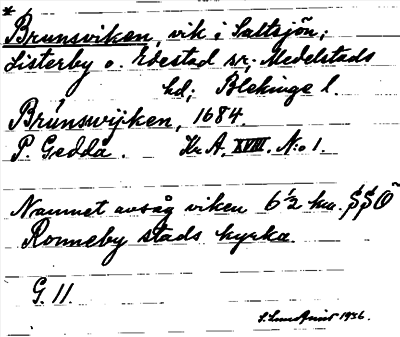 *
Brunsviken, vik i Saltsjön;
Listerby o. Edestad sr, Medelstads
hd; Blekinge l.
Brúnswijken, 1684.
P. Gedda. Kr. A. XVIII. N:o 1.
Namnet avsåg viken 6½ km. SSO
Ronneby stads kyrka.
G. 11.
S. Lundqvist 1936.